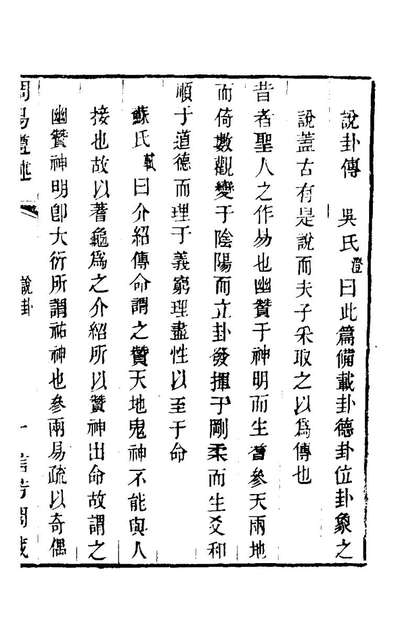 說卦傳　吳氏澄曰此篇備載卦德卦位卦象之
說葢古有是說而夫子采取之以爲傳也
昔者聖人之作易也幽贊于神明而生蓍參天兩地
而倚數觀變于陰陽而立卦發揮于剛柔而生爻和
順于道德而理于義窮理盡性以至于命
蘇氏軾曰介紹傳命謂之贊天地鬼神不能與人
接也故以蓍龜爲之介紹所以贊神出命故謂之
幽贊神明卽大衍所謂祐神也參兩易疏以奇偶
周易遵述
說卦
一